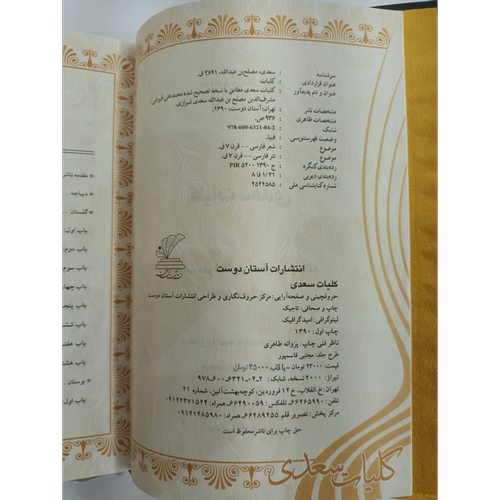 سرشناسه : سعدی، مصلح‌بن عبدالله، ۶۹۱؟ ق.
عنوان قراردادی : کلیات
عنوان و نام پدیدآور : کلیات سعدی مطابق با نسخه تصحیح شده محمدعلی فروغی/
مشرف‌الدین مصلح بن عبدالله سعدی شیرازی.
مشخصات نشر : تهران: آستان دوست، ۱۳۹۰.
مشخصات ظاهری : ۹۳۶ ص.
شابک : 978-600-6321-04-2
وضعیت فهرستنویسی : فیپا.
موضوع : شعر فارسی -- قرن ۷ ق.
موضوع : نثر فارسی -- قرن ۷ ق.
رده‌بندی کنگره : ج ۱۳۹۰ ۵۲۰۰ PIR
رده‌بندی دیویی : ۸ فا ۱/۳۱
شماره کتابشناسی ملی : ۲۵۲۴۵۸۵
انتشارات آستان دوست
کلیات سعدی
حروفچینی و صفحه‌آرایی: مرکز حروف‌نگاری و طراحی انتشارات آستان دوست
چاپ و صحافی: تاجیک
لیتوگرافی: امیدگرافیک
چاپ اول: ۱۳۹۰
ناظر فنی چاپ: پروانه طاهری
طرح جلد: مجتبی قاسمپور
قیمت: ۲۳۰۰۰ تومان = با قاب ۳۵۰۰۰ تومان
تیراژ: ۲۰۰۰ نسخه، شابک: ۲-۰۴-۶۳۲۱-۶۰۰-۹۷۸
تهران: خ انقلاب، خ ۱۲ فروردین، کوچه بهشت آئین، شماره ۲۱
تلفن: ۶۶۴۶۵۹۹۰ تلفکس: ۶۶۴۹۰۰۵۹ همراه: ۰۹۱۲۴۴۷۱۵۴۴
مرکز پخش: تصویر قلم ۶۶۴۸۹۲۵۵ همراه: ۰۹۱۲۱۴۸۵۹۸۰
حق چاپ برای ناشر محفوظ است
کلیات سعدی
* مقدمه ناشر
* دیباچه
* گلستان
باب اول:
باب دوم:
باب سوم
باب چهار
باب پنجم
باب ششم
باب هفتم
باب هشتم
* بوستان
باب اول